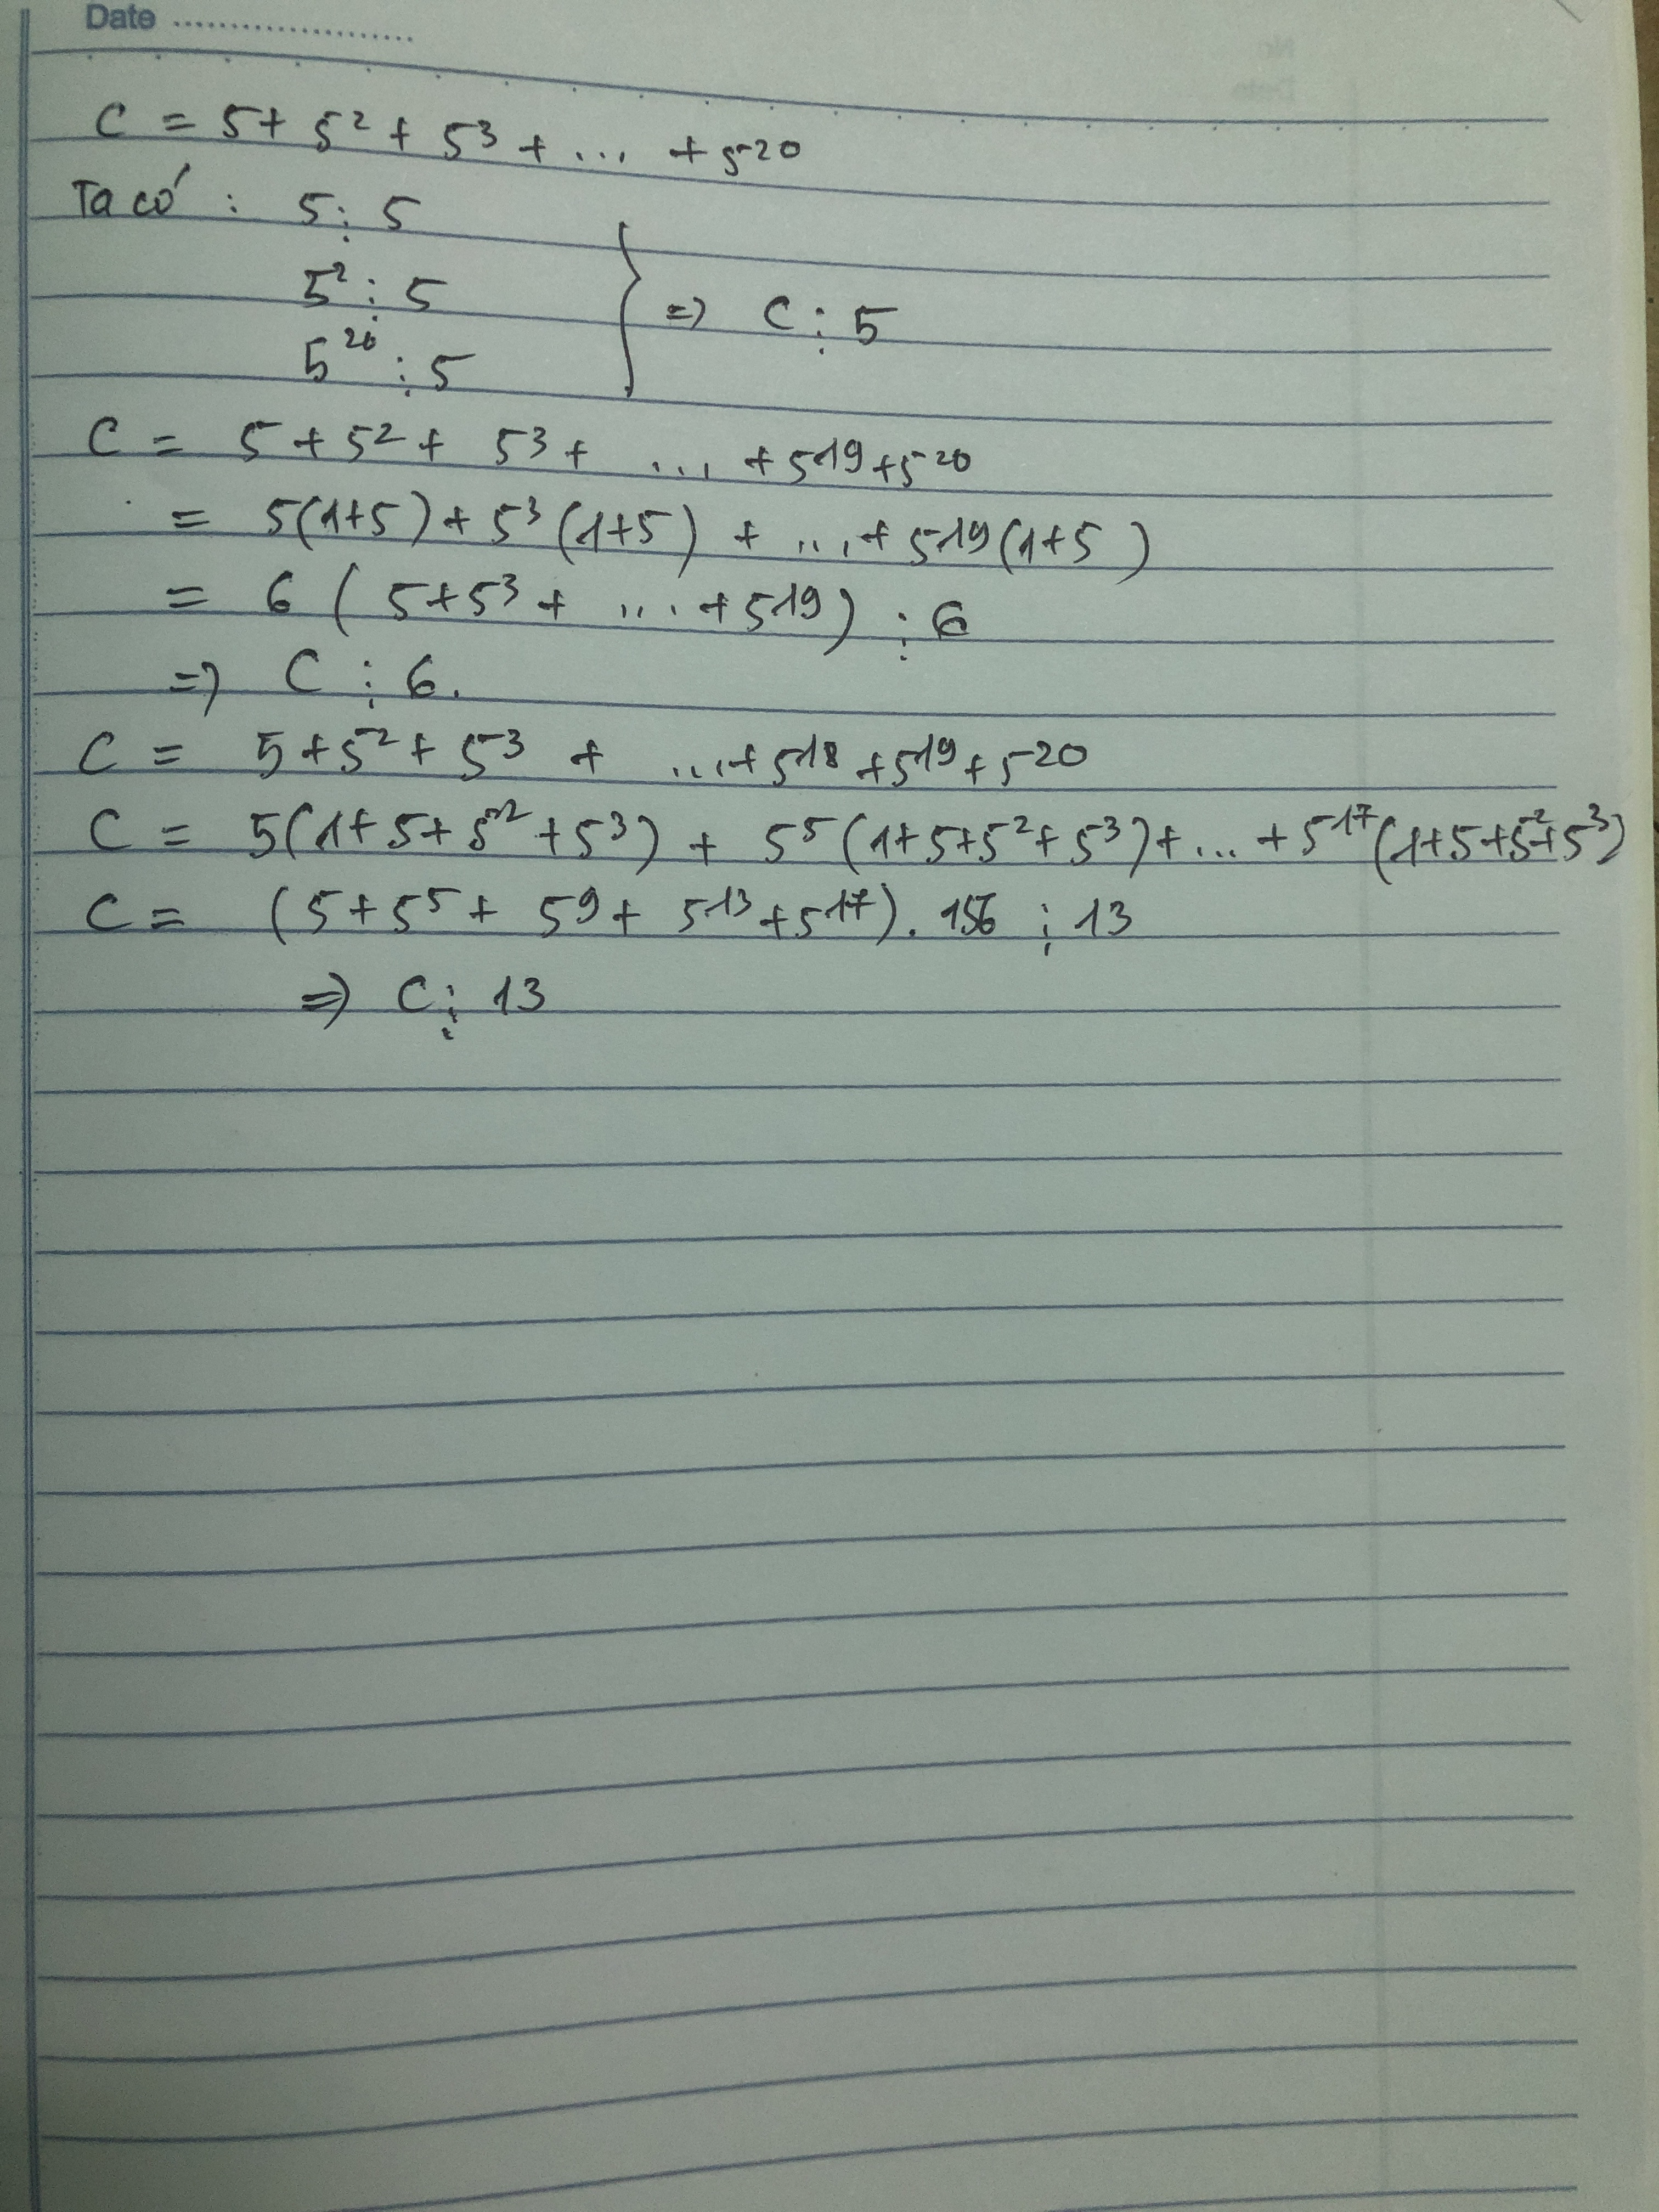 Date ....................
C = 5 + 5² + 5³ + ... + 5²⁰
Ta có : 5 ⋮ 5
5² ⋮ 5
5²⁰ ⋮ 5
} => C ⋮ 5
C = 5 + 5² + 5³ + ... + 5¹⁹ + 5²⁰
= 5(1+5) + 5³(1+5) + ... + 5¹⁹(1+5)
= 6 ( 5 + 5³ + ... + 5¹⁹ ) ⋮ 6
=> C ⋮ 6.
C = 5 + 5² + 5³ + ... + 5¹⁸ + 5¹⁹ + 5²⁰
C = 5(1+5+5²+5³) + 5⁵(1+5+5²+5³) + ... + 5¹⁷(1+5+5²+5³)
C = (5 + 5⁵ + 5⁹ + 5¹³ + 5¹⁷) . 156 ⋮ 13
=> C ⋮ 13